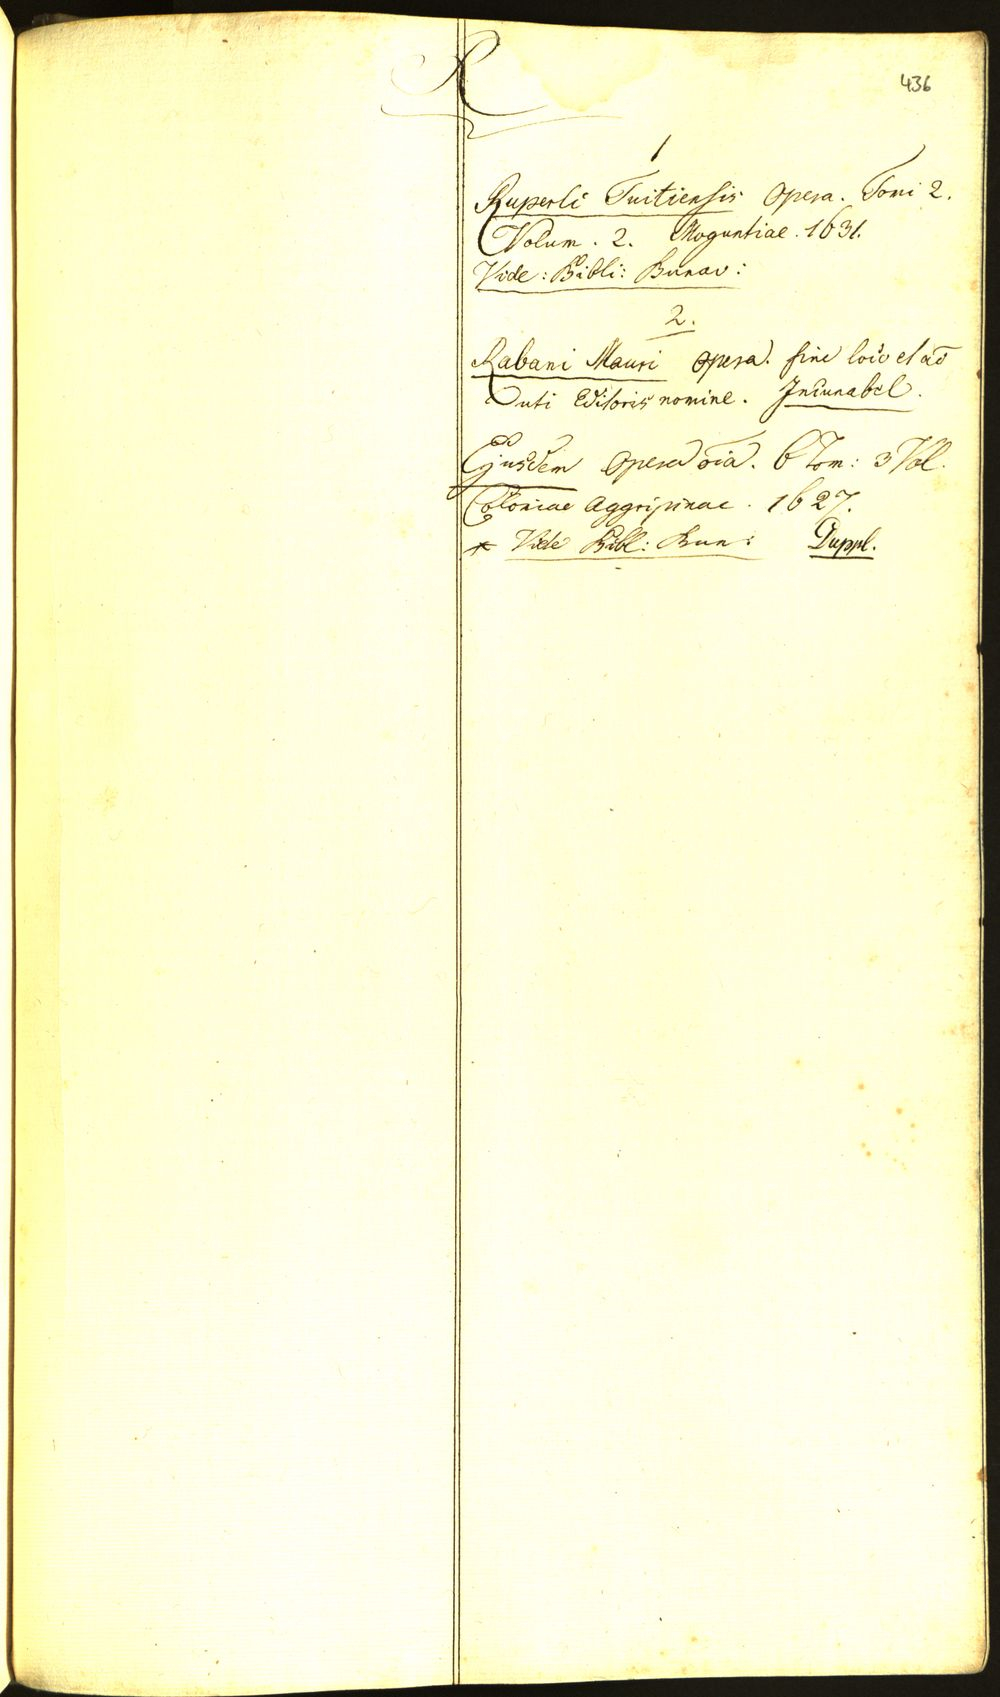 R
436
1
Ruperti Tuitiensis Opera. Tomi 2.
Volum. 2. Moguntiae. 1631.
Vide: Bibli: Bunav:
2.
Rabani Mauri opera. sine loco et aō
uti Editoris nomine. Incunabel.
Ejusdem opera oīa. 6 Tom: 3 Vol.
Coloniae Aggripinae. 1627.
* Vide Bibl: Bun: Duppl.